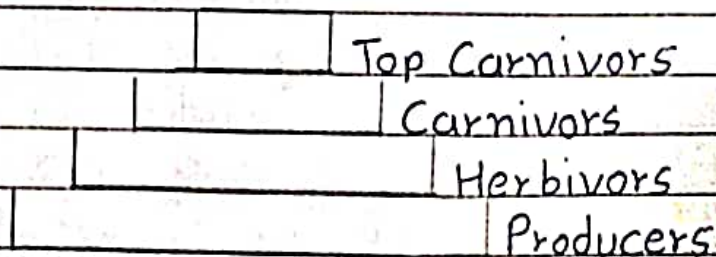 Top Carnivors
Carnivors
Herbivors
Producers